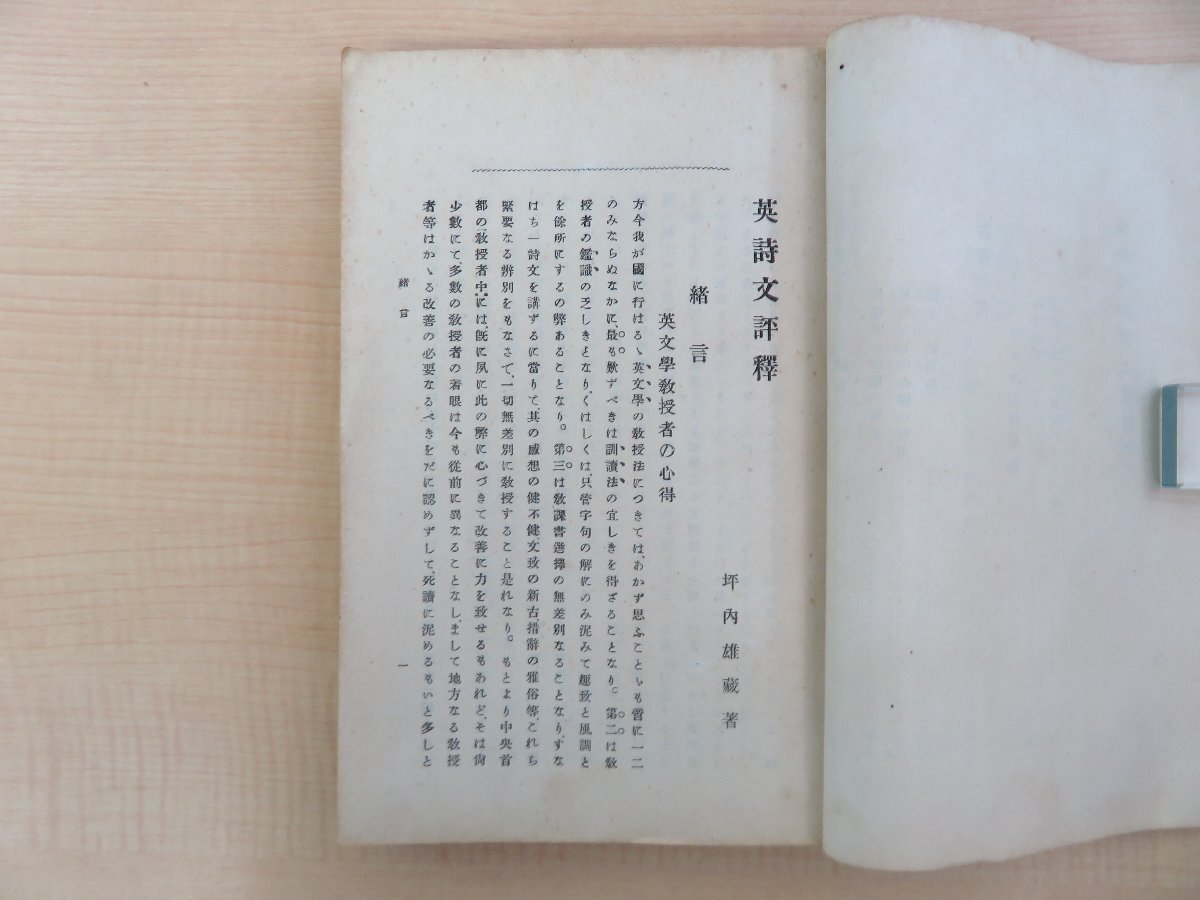 英詩文評釋
坪內雄藏著
緒言
英文學敎授者の心得
方今我が國に行はるゝ英文學の敎授法につきては、あかず思ふことゞも啻に一二
のみならぬなかに、最も歎ずべきは訓讀法の宜しきを得ざることなり。第二は敎
授者の鑑識の乏しきことなり、くはしくは、只管字句の解にのみ泥みて趣致と風調と
を餘所にするの弊あることなり。第三は敎課書選擇の無差別なることなり、すな
はち一詩文を講ずるに當りて、其の感想の健不健文致の新古、措辭の雅俗等、これら
緊要なる辨別をもなさで、一切無差別に敎授すること是れなり。もとより中央首
都の敎授者中には、旣に夙に此の弊に心づきて改善に力を致せるもあれど、そは尙
少數にて、多數の敎授者の着眼は今も從前に異なることなし、まして地方なる敎授
者等はかゝる改善の必要なるべきをだに認めずして、死讀に泥めるもいと多しと
緒言
一